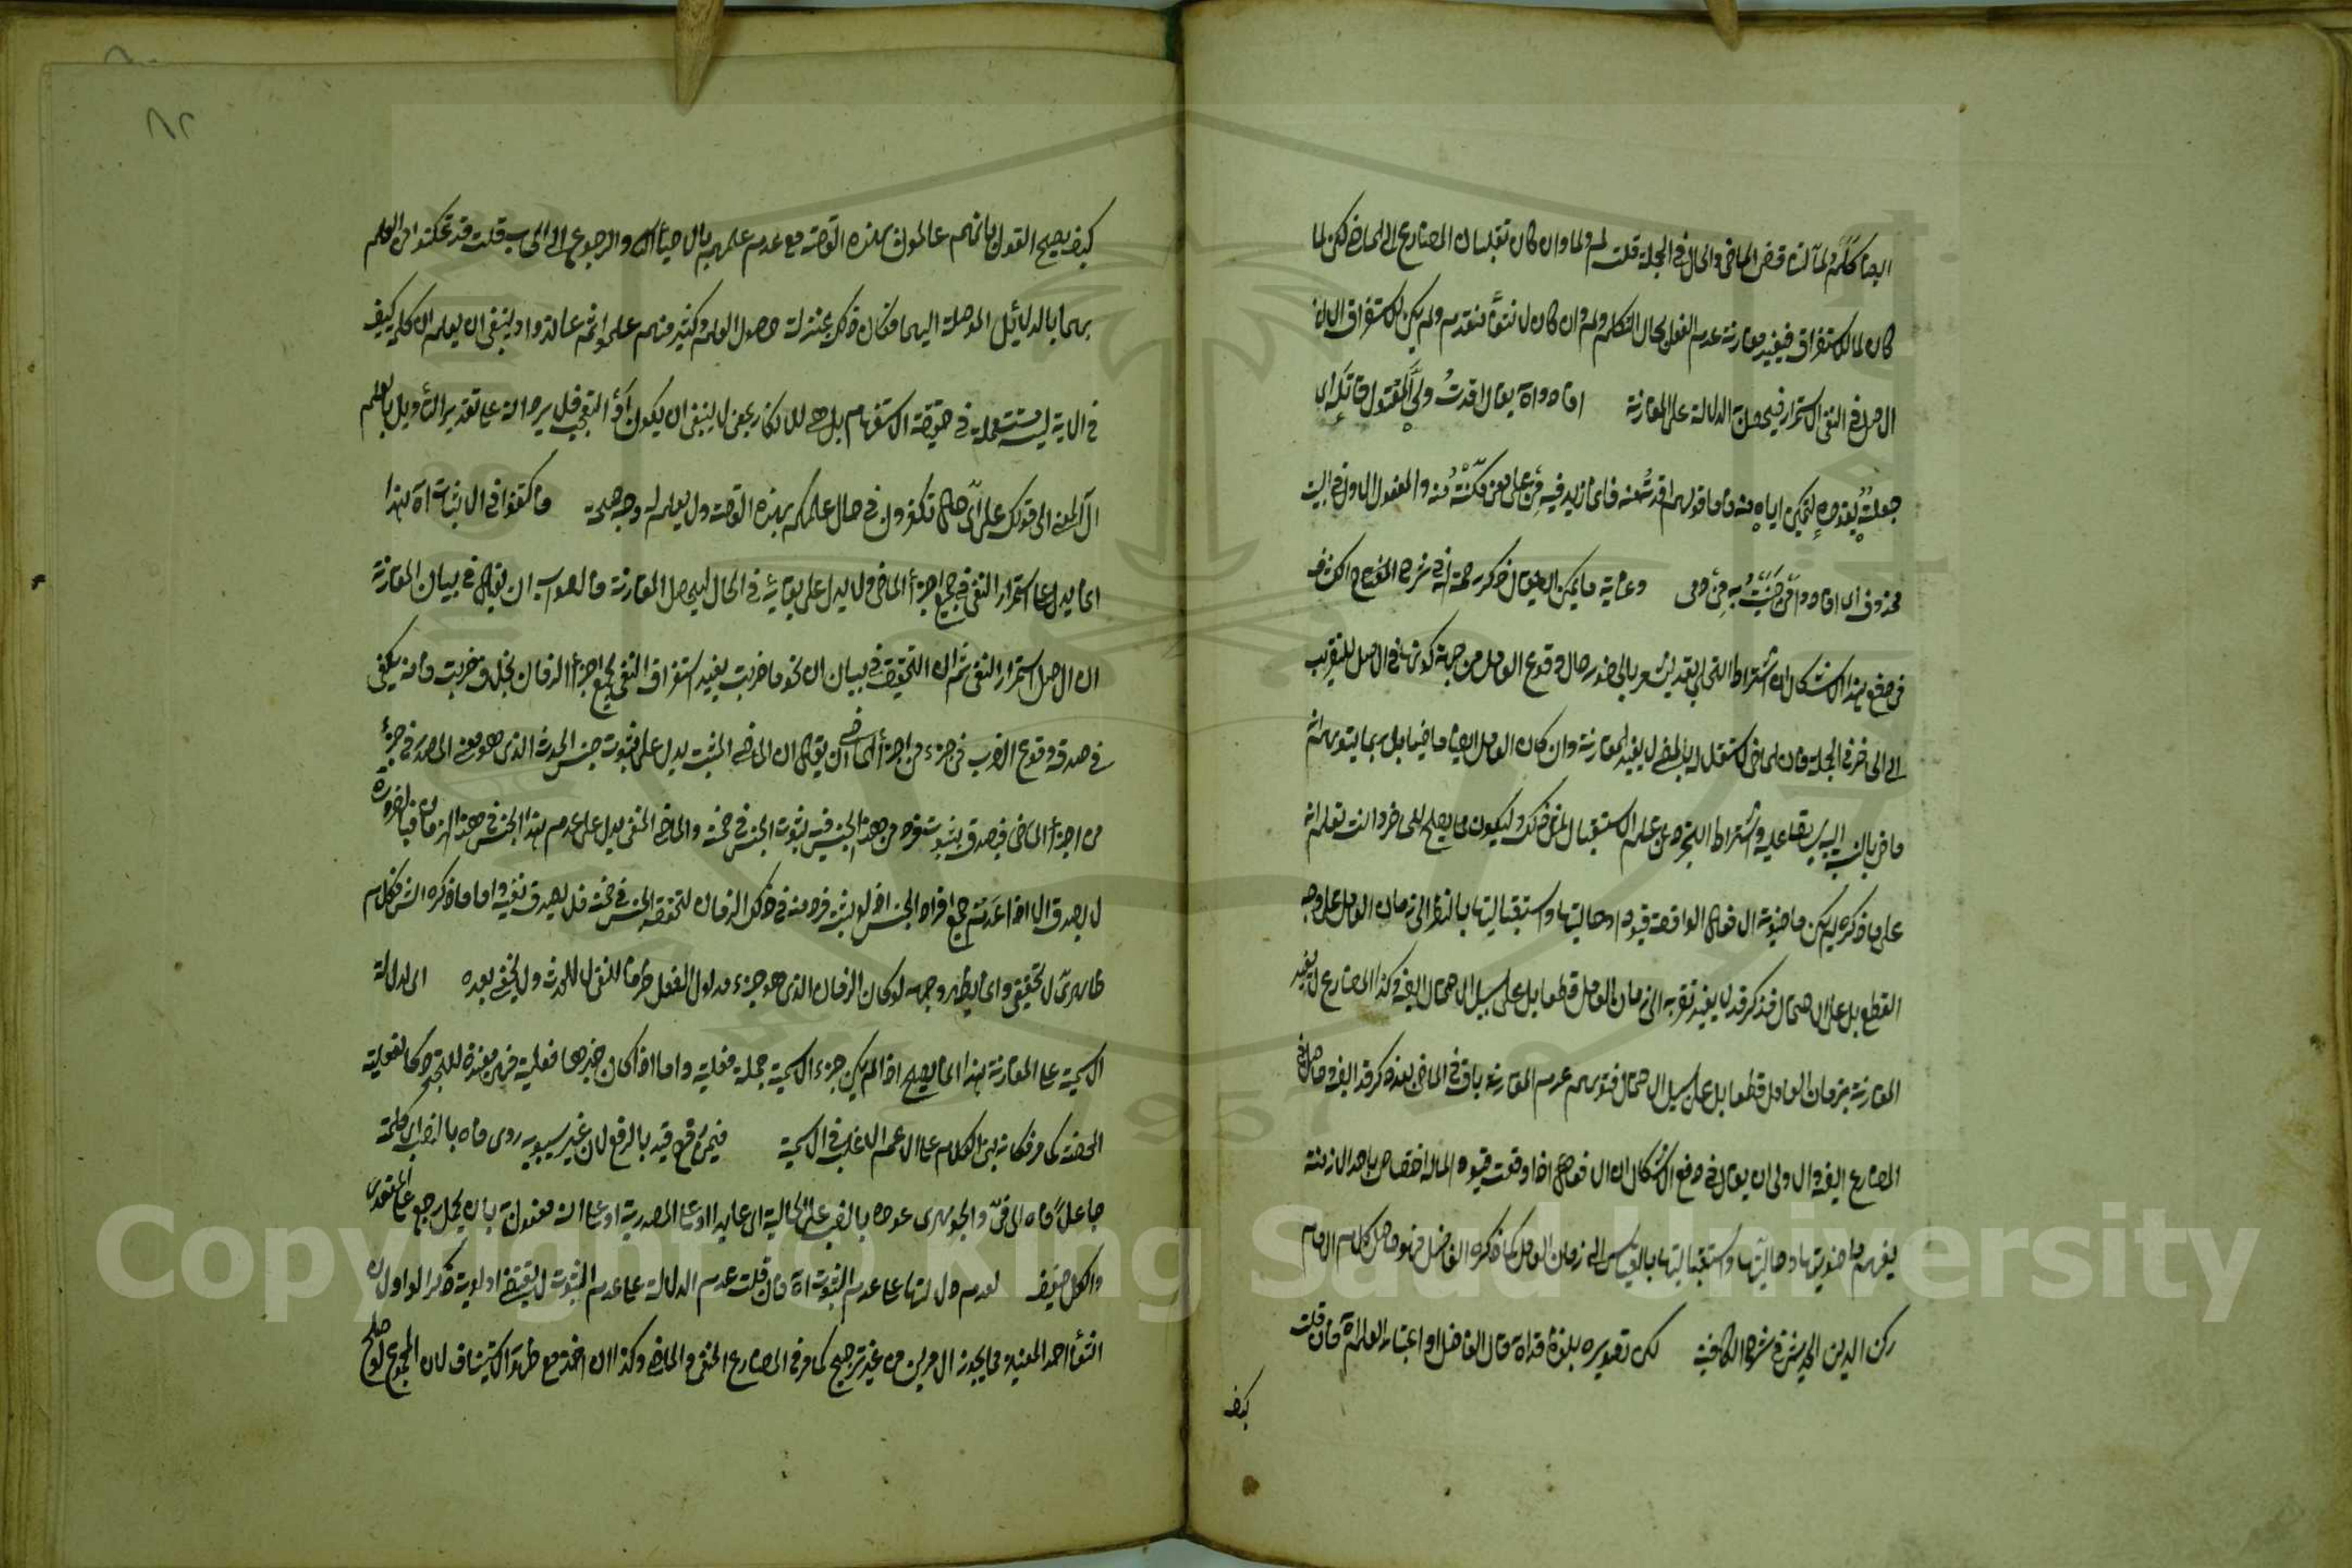 ايضا كلم ولما لتناقض الماضي والحال في الجملة قلت لم ولما وان كان تقلبان المضارع الى الماضي لكن لما
كان لما للاستغراق فيفيد مقارنة عدم الفعل لحال التكلم ولم وان كان لانتفاء متقدم ولم يكن للاستغراق الا ان
الاصل في النفي الاستمرار فيحصل الدلالة على المقارنة افاده واة يقال اقدت ولي المقتول قاتله اي
جعلته يقوده لتمكين اياه منه واما قولهم اقدته منه فاما زيد فيه من على معنى مكنته منه والمفعول الاول في البيت
محذوف اي افادوا من حنيت به من دمي وغاية ما يمكن ان يقال ذكر رحمة الله في شرح المفتاح الكشاف
في دفع هذا الاشكال ان اشتراط التحلي بقد ليشعر بالحضور حال وقوع العامل من جهة كونها في الاصل للتقريب
الى الحاضر في الجملة فان لماضي المستقل بالمضي لا يفيد المقارنة وان كان العامل ايضا ماضيا بل ربما يتوهم انه
ماض بالنسبة اليه سابقا عليه واشتراط التجرد عن علم الاستقبال للنفي ذلك وليكون مما يصلح للحاضر وانت تعلم انه
على ما ذكره لم يكن ماضوية الافعال الواقعة قيودا وحاليتها واستقباليتها بالنظر الى زمان العامل على وجه
القطع بل على الاحتمال فذكر قد لا يفيد تقربه الى زمان العامل قطعا بل على سبيل الاحتمال ايضا وكذا المضارع لا يفيد
المقارنة بزمان العامل قطعا بل على سبيل الاحتمال فتوهم عدم المقارنة باق في الماضي بعد ذكر قد ايضا وحاصل في
المضارع ايضا والاولى ان يقال في دفع الاشكال ان الافعال اذا وقعت قيودا لما له اختصاص باحد الازمنة
يفهم ماضويتها وحاليتها واستقباليتها بالقياس الى زمان العامل كما ذكره الفاضل فهو حاصل كلام الامام
ركن الدين الحديثي في شرح الكافية لكن تصويره بلفظة قد اة قال الفاضل او اعتبار العلم اة فان قلت
كيف
كيف يصح القول بانهم عالمون بهذه القصة مع عدم علمهم بالاحياء الله والرجوع اي الحساب قلت قد تمكنوا من العلم
بهما بالدلائل الموصلة اليهما فكان ذلك بمنزلة حصول العلم وكثير منهم علموا ثم عاندوا او ينبغي ان يعلم ان كلمة كيف
في الاية ليست مستعملة في حقيقة الاستفهام بل هي للانكار بمعنى لا ينبغي ان يكون او التعجب فلا يرد انه على تقدير التأويل بالعلم
آل المعنى الى قولك على اي حال تكفرون في حال علمكم بهذه القصة ولا يعلم له وجه صحة واكتفوا في الاثبات اة هذا
انما يدل على استمرار النفي في جميع اجزاء الماضي ولا يدل على بقائه في الحال ليحصل المقارنة والصواب ان يقال في بيان المقارنة
ان الاصل استمرار النفي ثم ان التحقيق في بيان ان نحو ما ضربت يفيد استغراق النفي لجميع اجزاء الزمان بخلاف ضربت وانه يكفي
في صدقه وقوع الضرب في جزء من اجزاء الماضي ان يقال ان الماضي المثبت يدل على ثبوت جنس الحدث الذي هو معنى المصدر في جزء
من اجزاء الماضي فيصدق بثبوت فرد من هذا الجنس فيه بثبوت الجنس في ضمنه والماضي المنفي يدل على عدم هذا الجنس في هذا الزمان فبالضرورة
لا يصدق الا اذا عدم جميع افراد الجنس اذ لو ثبت فرد منه في ذلك الزمان لتحقق الجنس في ضمنه فلا يصدق نفيه واما ما ذكره الشارح فكلام
ظاهري لا تحقيقي وانما يظهر وجهه لو كان الزمان الذي هو جزء مدلول الفعل ظرفا للنفي لا للحدث ولا يخفى بعده اي لدلالة
الاسمية على المقارنة هذا انما يصح اذا لم يكن جزء الاسمية جملة فعلية واما اذا كان خبرها فعلية فهي مفيدة للتجدد كالفعلية
المحضة كما مر فكانه بنى الكلام على الاعم الاغلب في الاسمية فيمن رفع قيد بالرفع لان غير سيبويه روى فاه بالنصب اي كلمته
جاعلا فاه الى في والجوهري عوده بالنصب على الحالية اي عايدا او على المصدرية او على انه مفعول به بان يحمل رجع على المتعدي
والكل ضعيف لعدم دلالتها على عدم الثبوت اة فان قلت عدم الدلالة على عدم الثبوت لا يقتضي اولوية ذكر الواو لان
انتفاء احد القيدين مما يجوز الامرين من غير ترجيح كما مر في المضارع المنفي والماضي وكذا ان انضم مع ظهور الاستيناف لان المجموع لو صلح